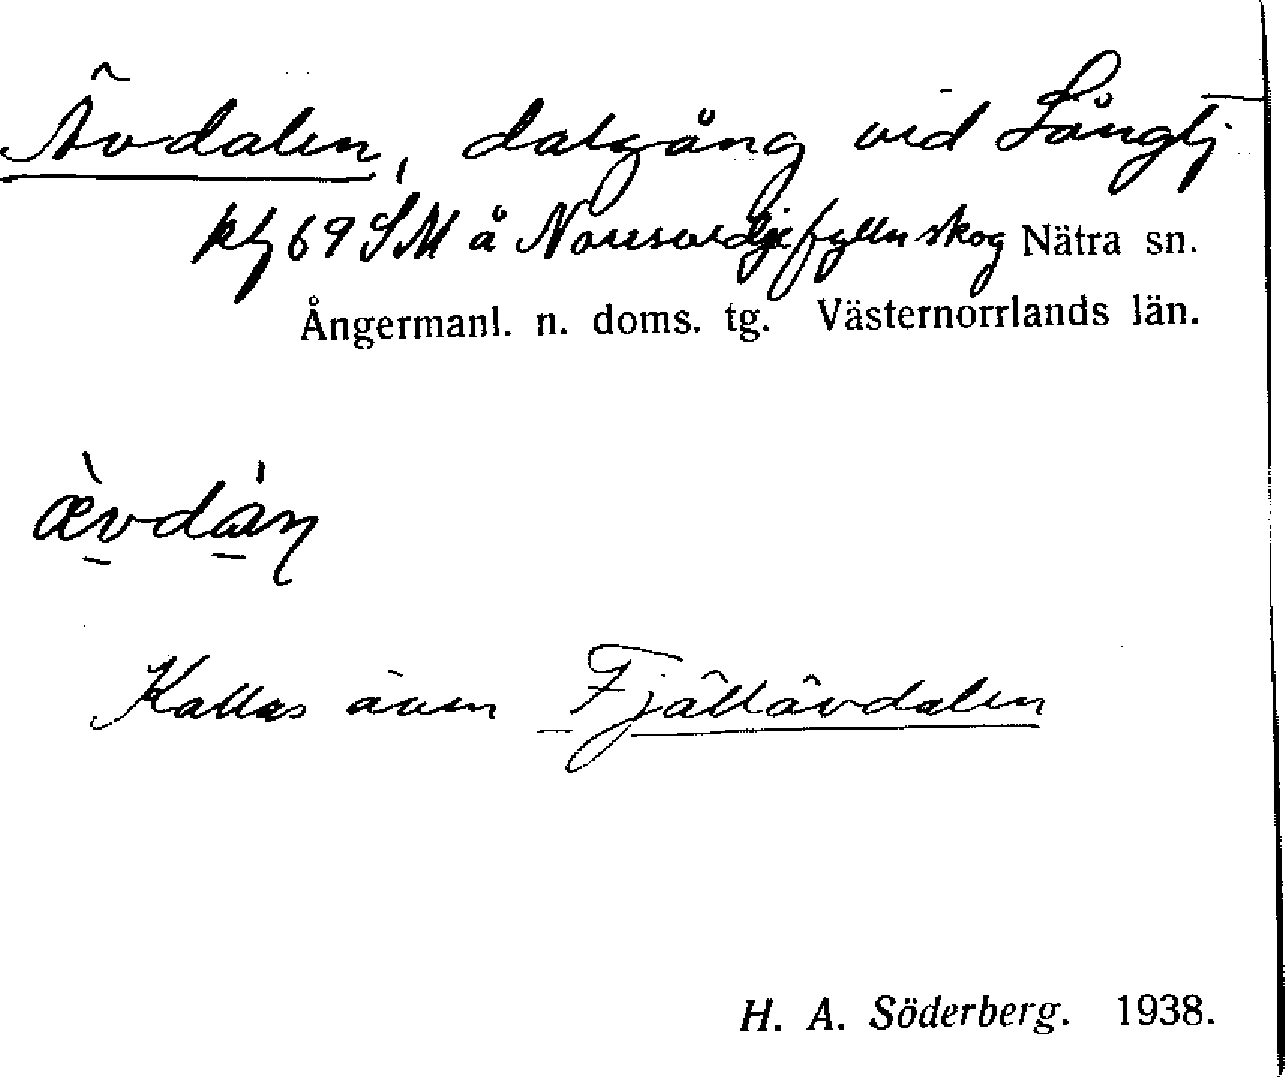 Ävdalen, dalgång vid Långtj
kbl 69 SM å skog Nätra sn.
Ångermanl. n. doms. tg. Västernorrlands län.
ævdàn
Kallas även Fjällävdalen
H. A. Söderberg. 1938.